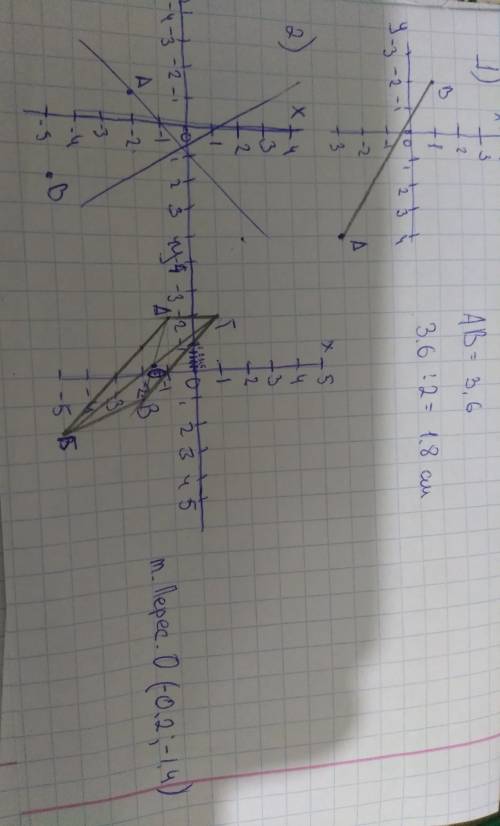 1)
x
3
2
1
0
-1
-2
-3
-3 -2 -1 1 2 3 4
y
B
A
AB = 3,6
3,6 : 2 = 1,8 см
2)
x
4
3
2
1
0
-1
-2
-3
-4
-5
-4 -3 -2 -1 1 2 3 4
y
A
B
x
5
4
3
2
1
0
-1
-2
-3
-4
-5
-3 -2 1 2 3 4 5
Г
A
B
Б
т. Перес. О (-0,2; -1,4)